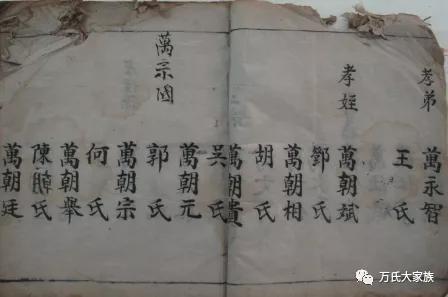 孝弟 萬永智
王氏
孝姪 萬朝斌
鄧氏
萬朝相
胡氏
萬朝貴
吳氏
萬朝元
萬宗國
郭氏
萬朝宗
何氏
萬朝舉
陳 氏
萬朝廷
万氏大家族